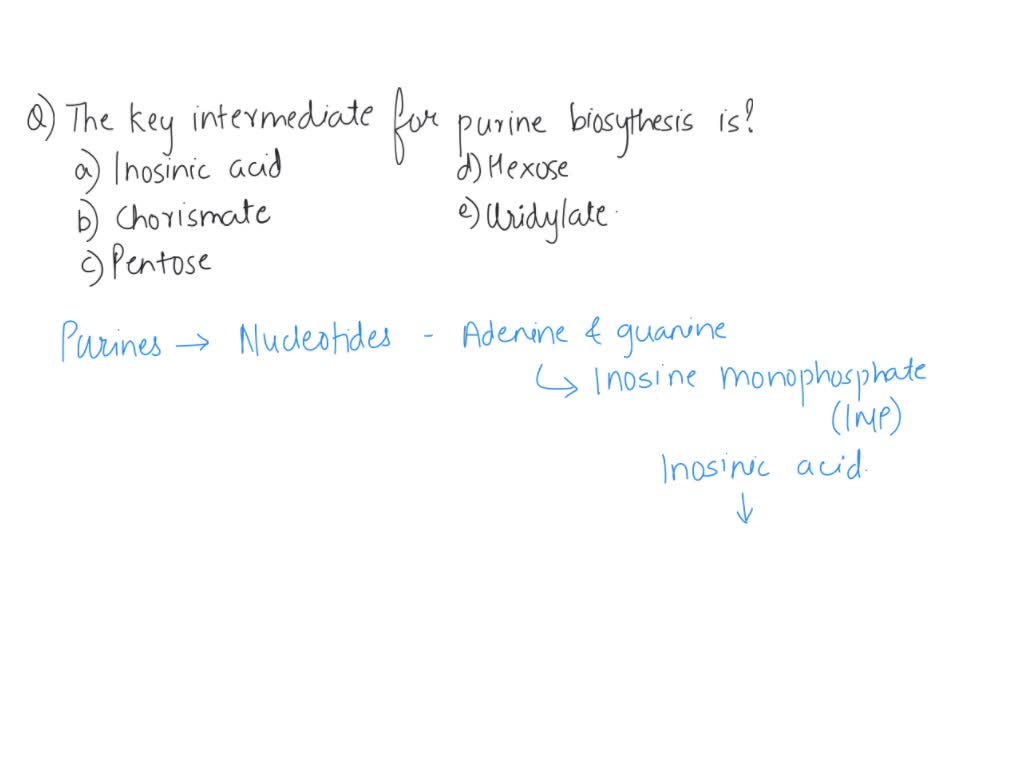 Q) The key intermediate for purine biosythesis is?
a) Inosinic acid
b) Chorismate
c) Pentose
d) Hexose
e) Uridylate.
Purines → Nucleotides - Adenine & guanine
↳ Inosine monophosphate
(IMP)
Inosinic acid.
↓